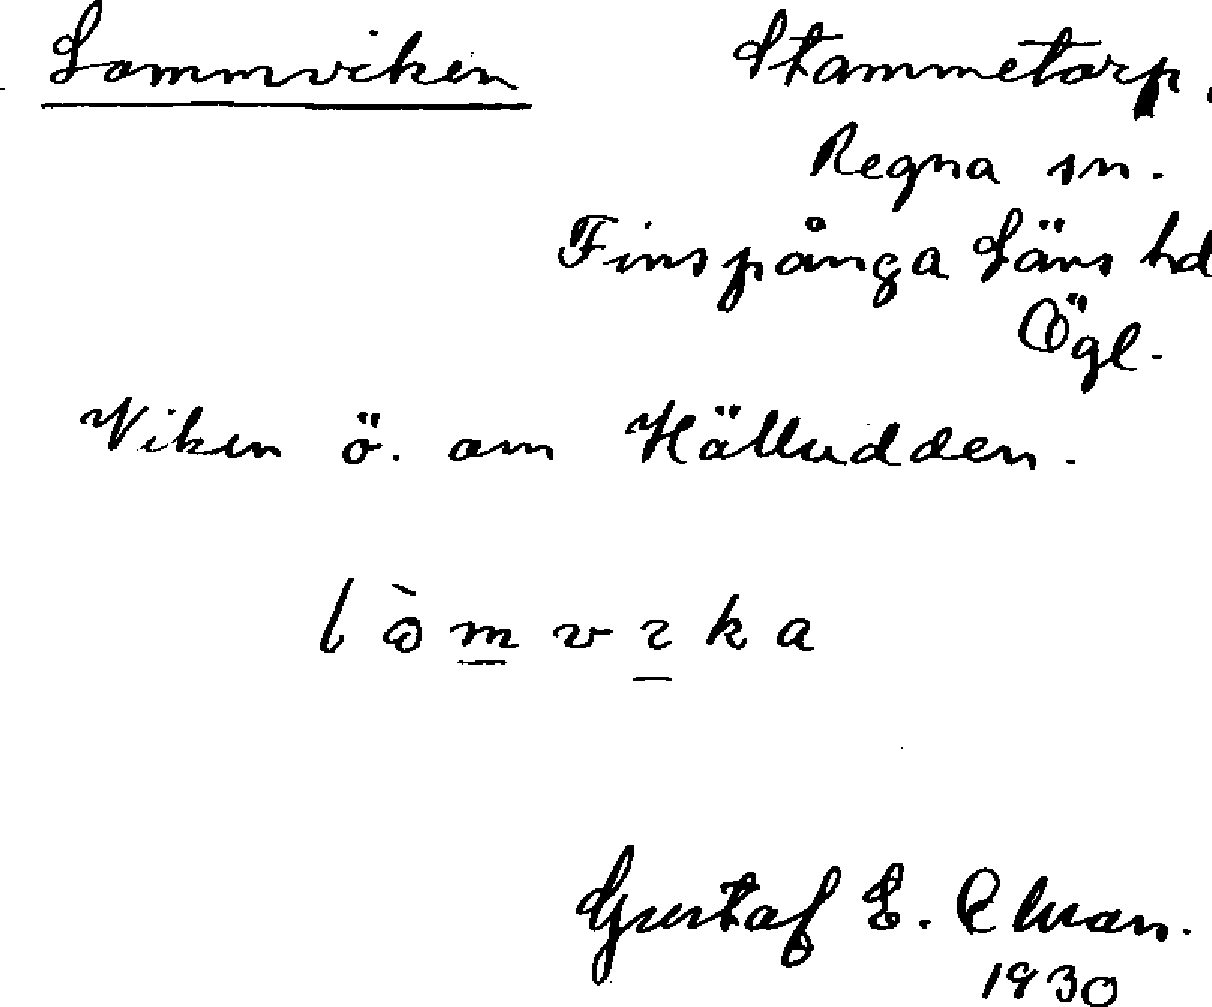 Lommviken Stammetorp.
Regna sn.
Finspånga läns hd
Ögl.
Viken ö. om Hälludden.
l ò m v ɩ k a
Gustaf E.
1930